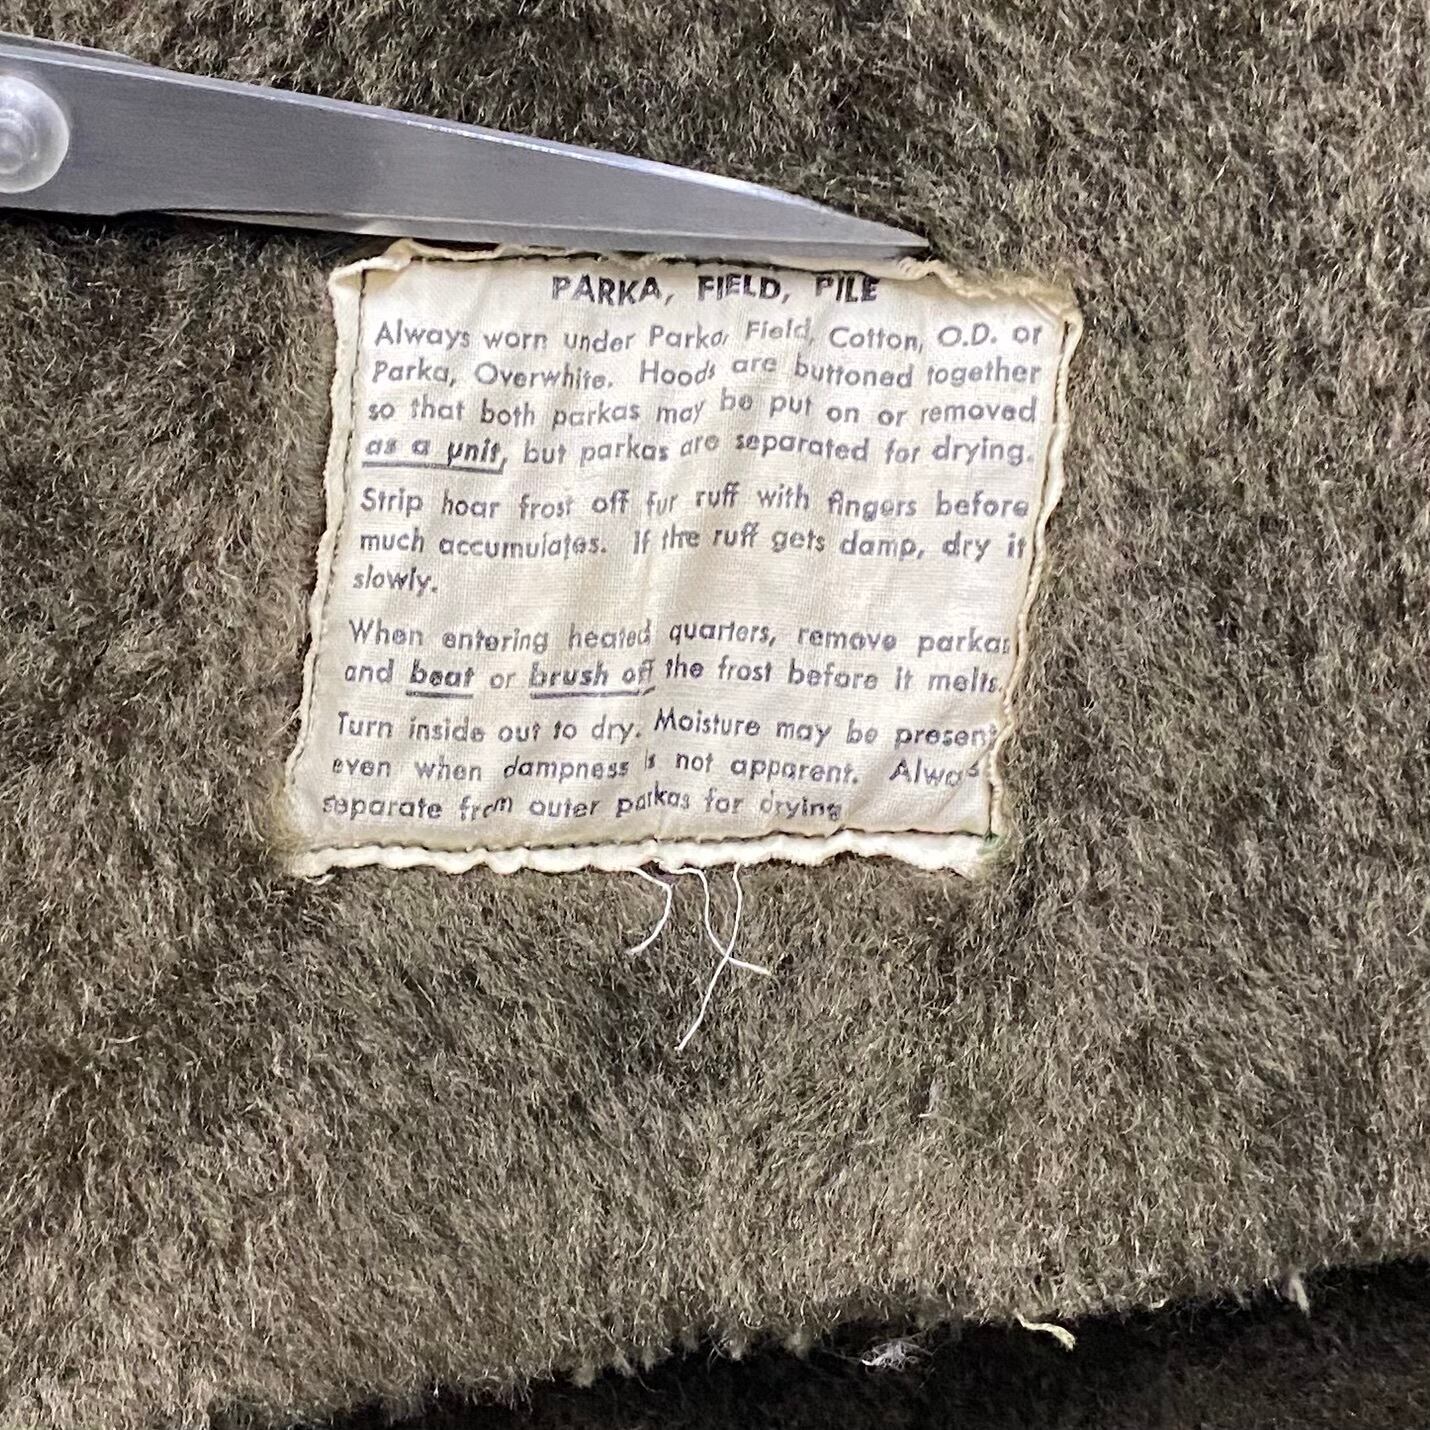 PARKA, FIELD, PILE
Always worn under Parka, Field, Cotton, O.D. or
Parka, Overwhite. Hoods are buttoned together
so that both parkas may be put on or removed
as a unit, but parkas are separated for drying.
Strip hoar frost off fur ruff with fingers before
much accumulates. If the ruff gets damp, dry it
slowly.
When entering heated quarters, remove parkas
and beat or brush off the frost before it melts.
Turn inside out to dry. Moisture may be present
even when dampness is not apparent. Always
separate from outer parkas for drying